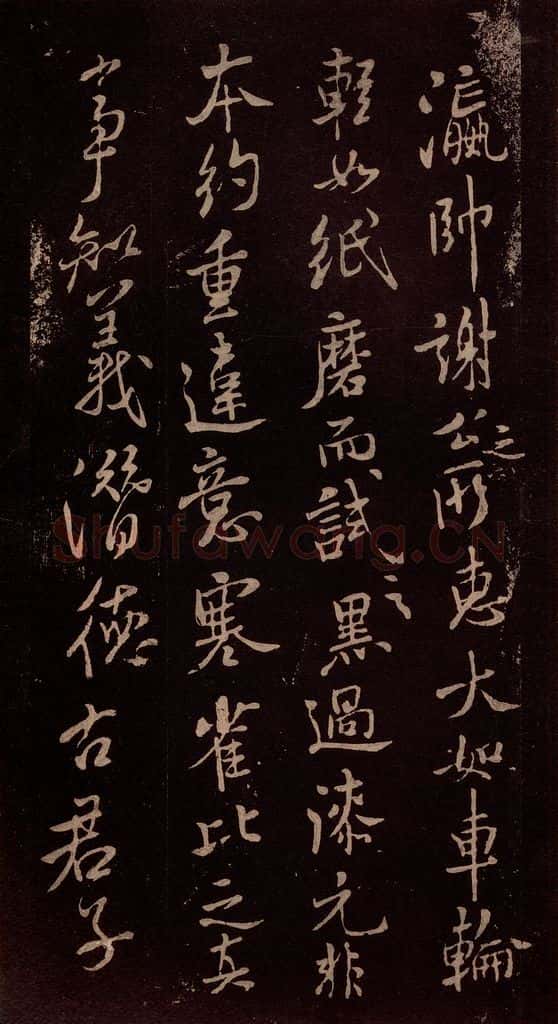 瀛帥謝公之所惠大如車輪
輕如紙磨而試之黑過漆元非
本約重違意寒雀比之真
事知義潛德古君子
Shufawang.CN